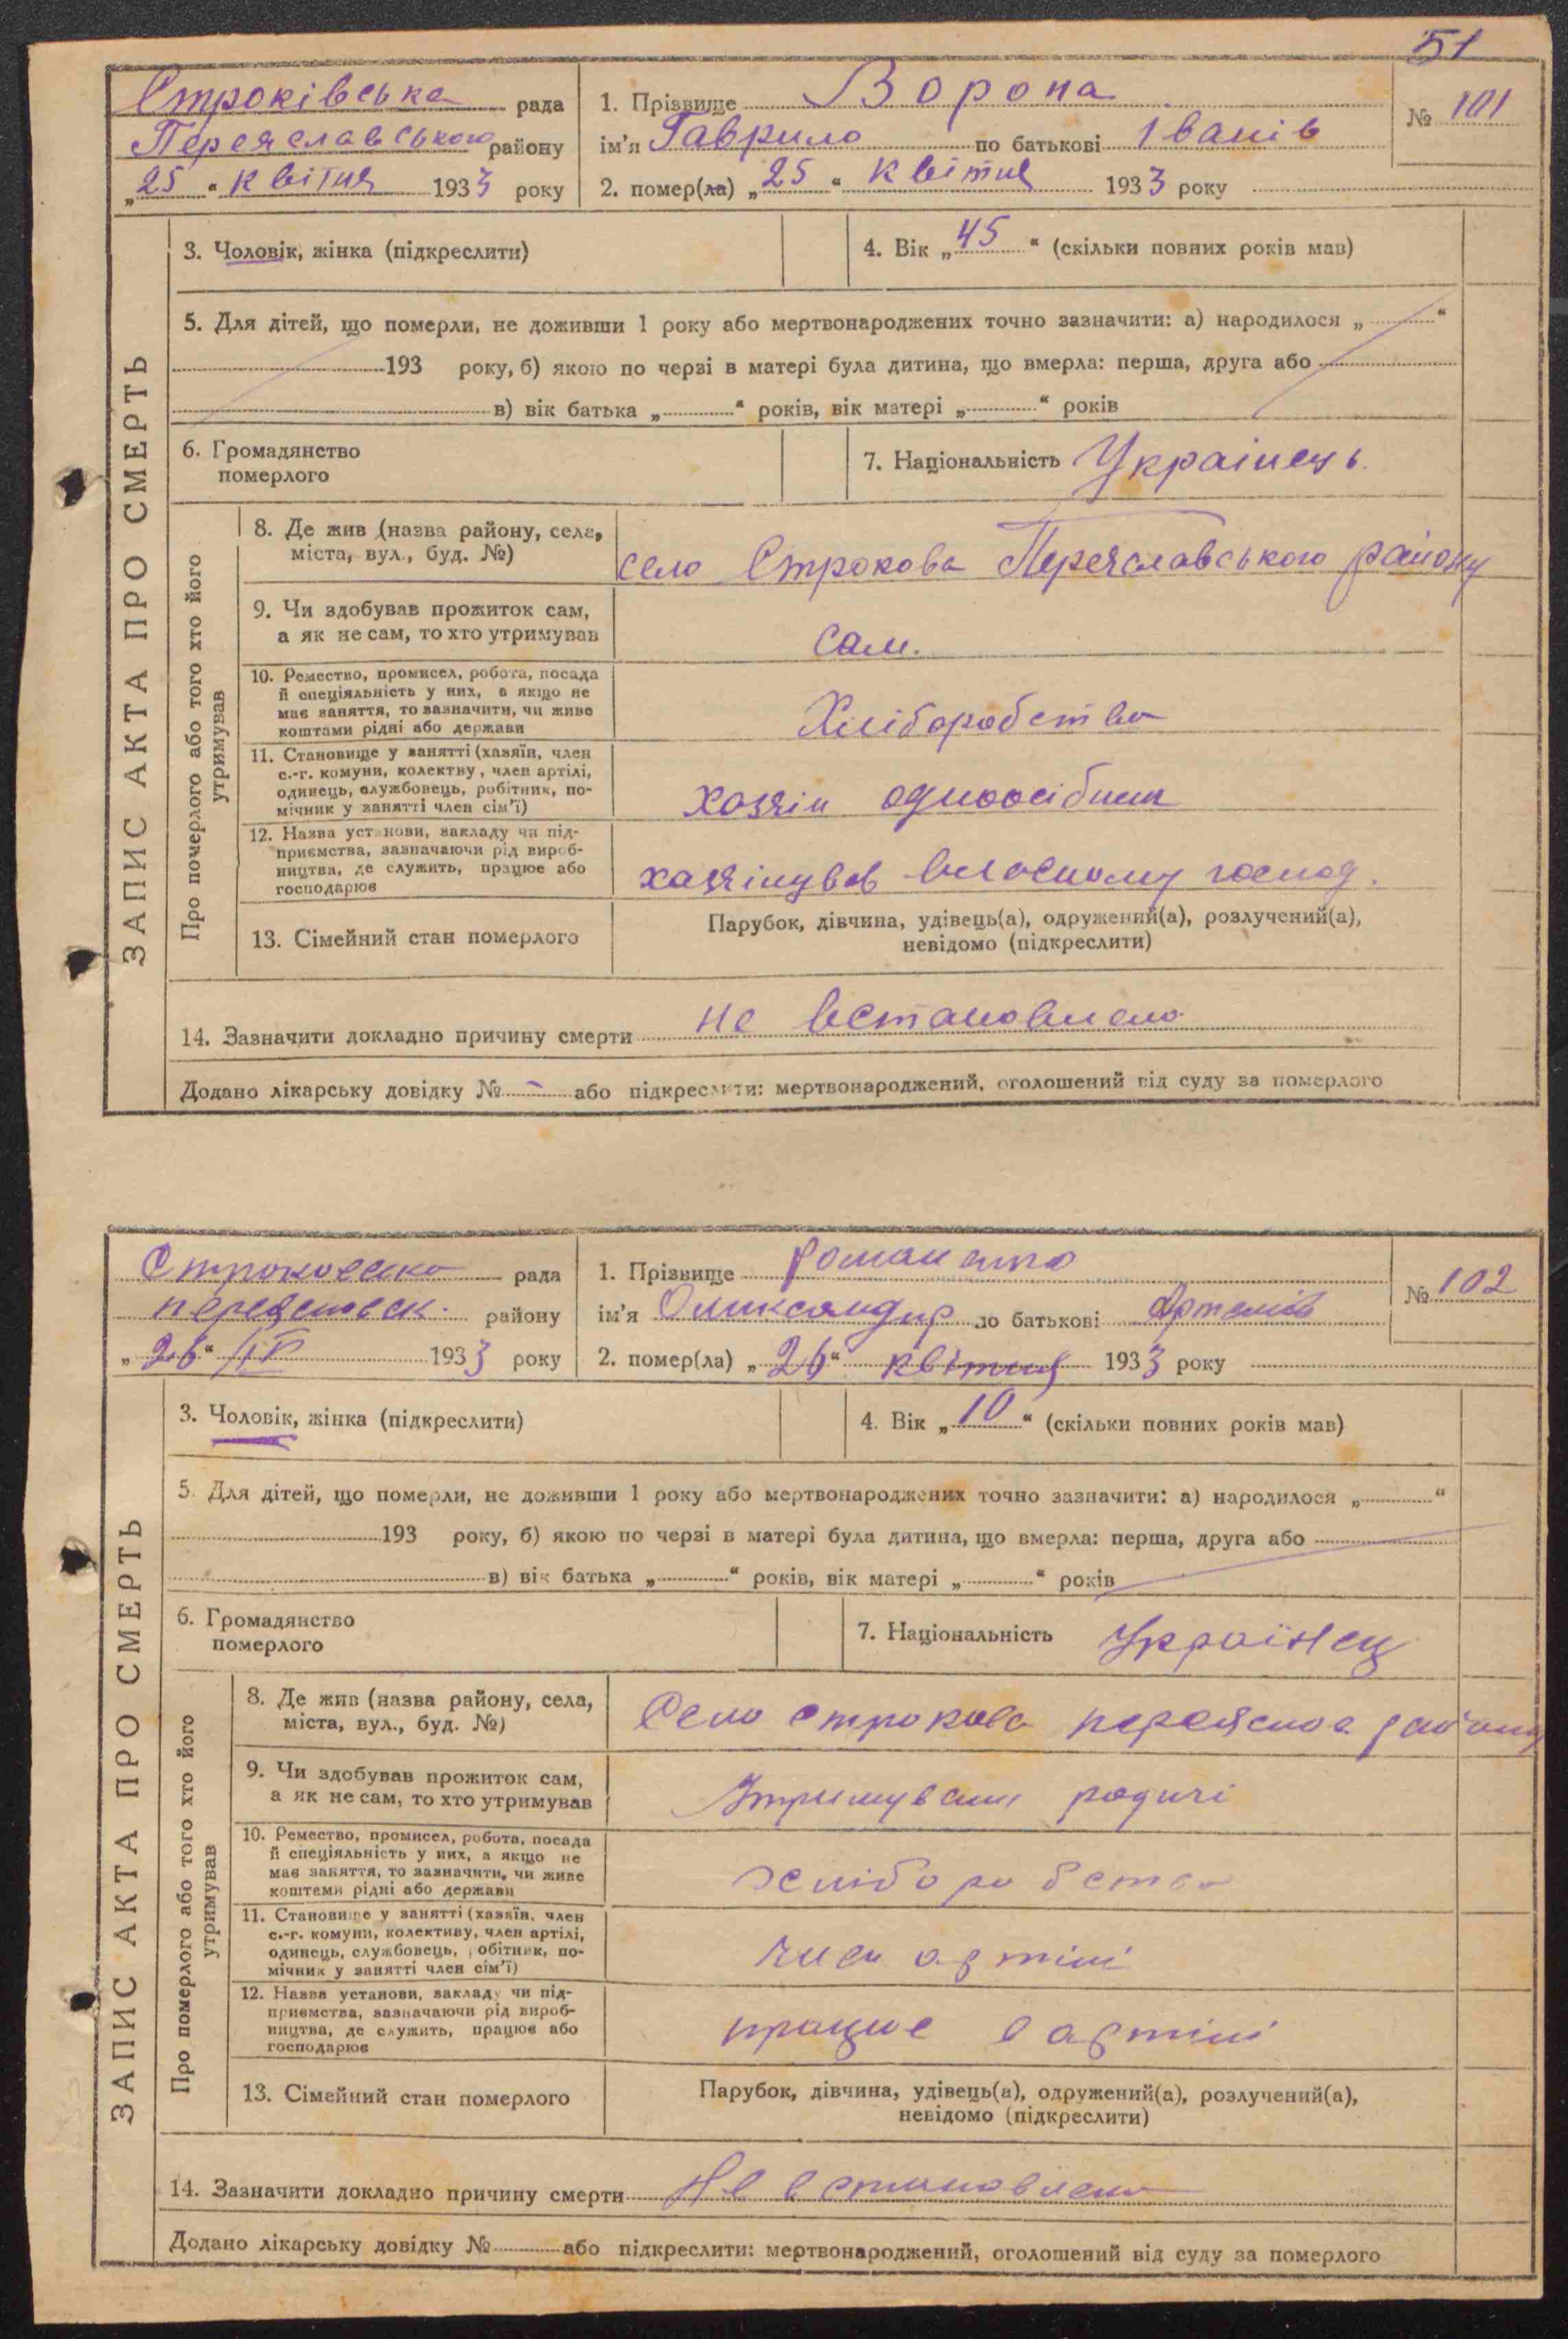 51
Строківська рада
Переяславського району
„25“ квітня 1933 року
1. Прізвище Ворона
ім'я Гаврило по батькові Іванів
№ 101
2. помер(ла) „25“ квітня 1933 року
ЗАПИС АКТА ПРО СМЕРТЬ
3. Чоловік, жінка (підкреслити)
4. Вік „45“ (скільки повних років мав)
5. Для дітей, що померли, не доживши 1 року або мертвонароджених точно зазначити: а) народилося „ “
193 року, б) якою по черзі в матері була дитина, що вмерла: перша, друга або
в) вік батька „ “ років, вік матері „ “ років
6. Громадянство
померлого
7. Національність Українець.
Про померлого або того хто його
утримував
8. Де жив (назва району, села,
міста, вул., буд. №)
село Строкова Переяславського району
9. Чи здобував прожиток сам,
а як не сам, то хто утримував
сам.
10. Ремество, промисел, робота, посада
й спеціяльність у них, а якщо не
має заняття, то зазначити, чи живе
коштами рідні або держави
Хліборобство
11. Становище у занятті (хазяїн, член
с.-г. комуни, колективу, член артілі,
одинець, службовець, робітник, по-
мічник у занятті член сім'ї)
хозяїн одноосібник
12. Назва установи, закладу чи під-
приємства, зазначаючи рід вироб-
ництва, де служить, працює або
господарює
хазяінував власному господ.
13. Сімейний стан померлого
Парубок, дівчина, удівець(а), одружений(а), розлучений(а),
невідомо (підкреслити)
14. Зазначити докладно причину смерти не встановлено
Додано лікарську довідку № – або підкреслити: мертвонароджений, оголошений від суду за померлого
рада
району
„26“ IV 1933 року
1. Прізвище Романенко
ім'я Олександр по батькові Артемів
№ 102
2. помер(ла) „26“ квітня 1933 року
ЗАПИС АКТА ПРО СМЕРТЬ
3. Чоловік, жінка (підкреслити)
4. Вік „10“ (скільки повних років мав)
5. Для дітей, що померли, не доживши 1 року або мертвонароджених точно зазначити: а) народилося „ “
193 року, б) якою по черзі в матері була дитина, що вмерла: перша, друга або
в) вік батька „ “ років, вік матері „ “ років
6. Громадянство
померлого
7. Національність Українец
Про померлого або того хто його
утримував
8. Де жив (назва району, села,
міста, вул., буд. №)
Село строкова переяслов району
9. Чи здобував прожиток сам,
а як не сам, то хто утримував
Утримували родичі
10. Ремество, промисел, робота, посада
й спеціяльність у них, а якщо не
має заняття, то зазначити, чи живе
коштами рідні або держави
хліборобство
11. Становище у занятті (хазяїн, член
с.-г. комуни, колективу, член артілі,
одинець, службовець, робітник, по-
мічник у занятті член сім'ї)
член артілі
12. Назва установи, закладу чи під-
приємства, зазначаючи рід вироб-
ництва, де служить, працює або
господарює
працює в артілі
13. Сімейний стан померлого
Парубок, дівчина, удівець(а), одружений(а), розлучений(а),
невідомо (підкреслити)
14. Зазначити докладно причину смерти Не встановлено
Додано лікарську довідку № або підкреслити: мертвонароджений, оголошений від суду за померлого